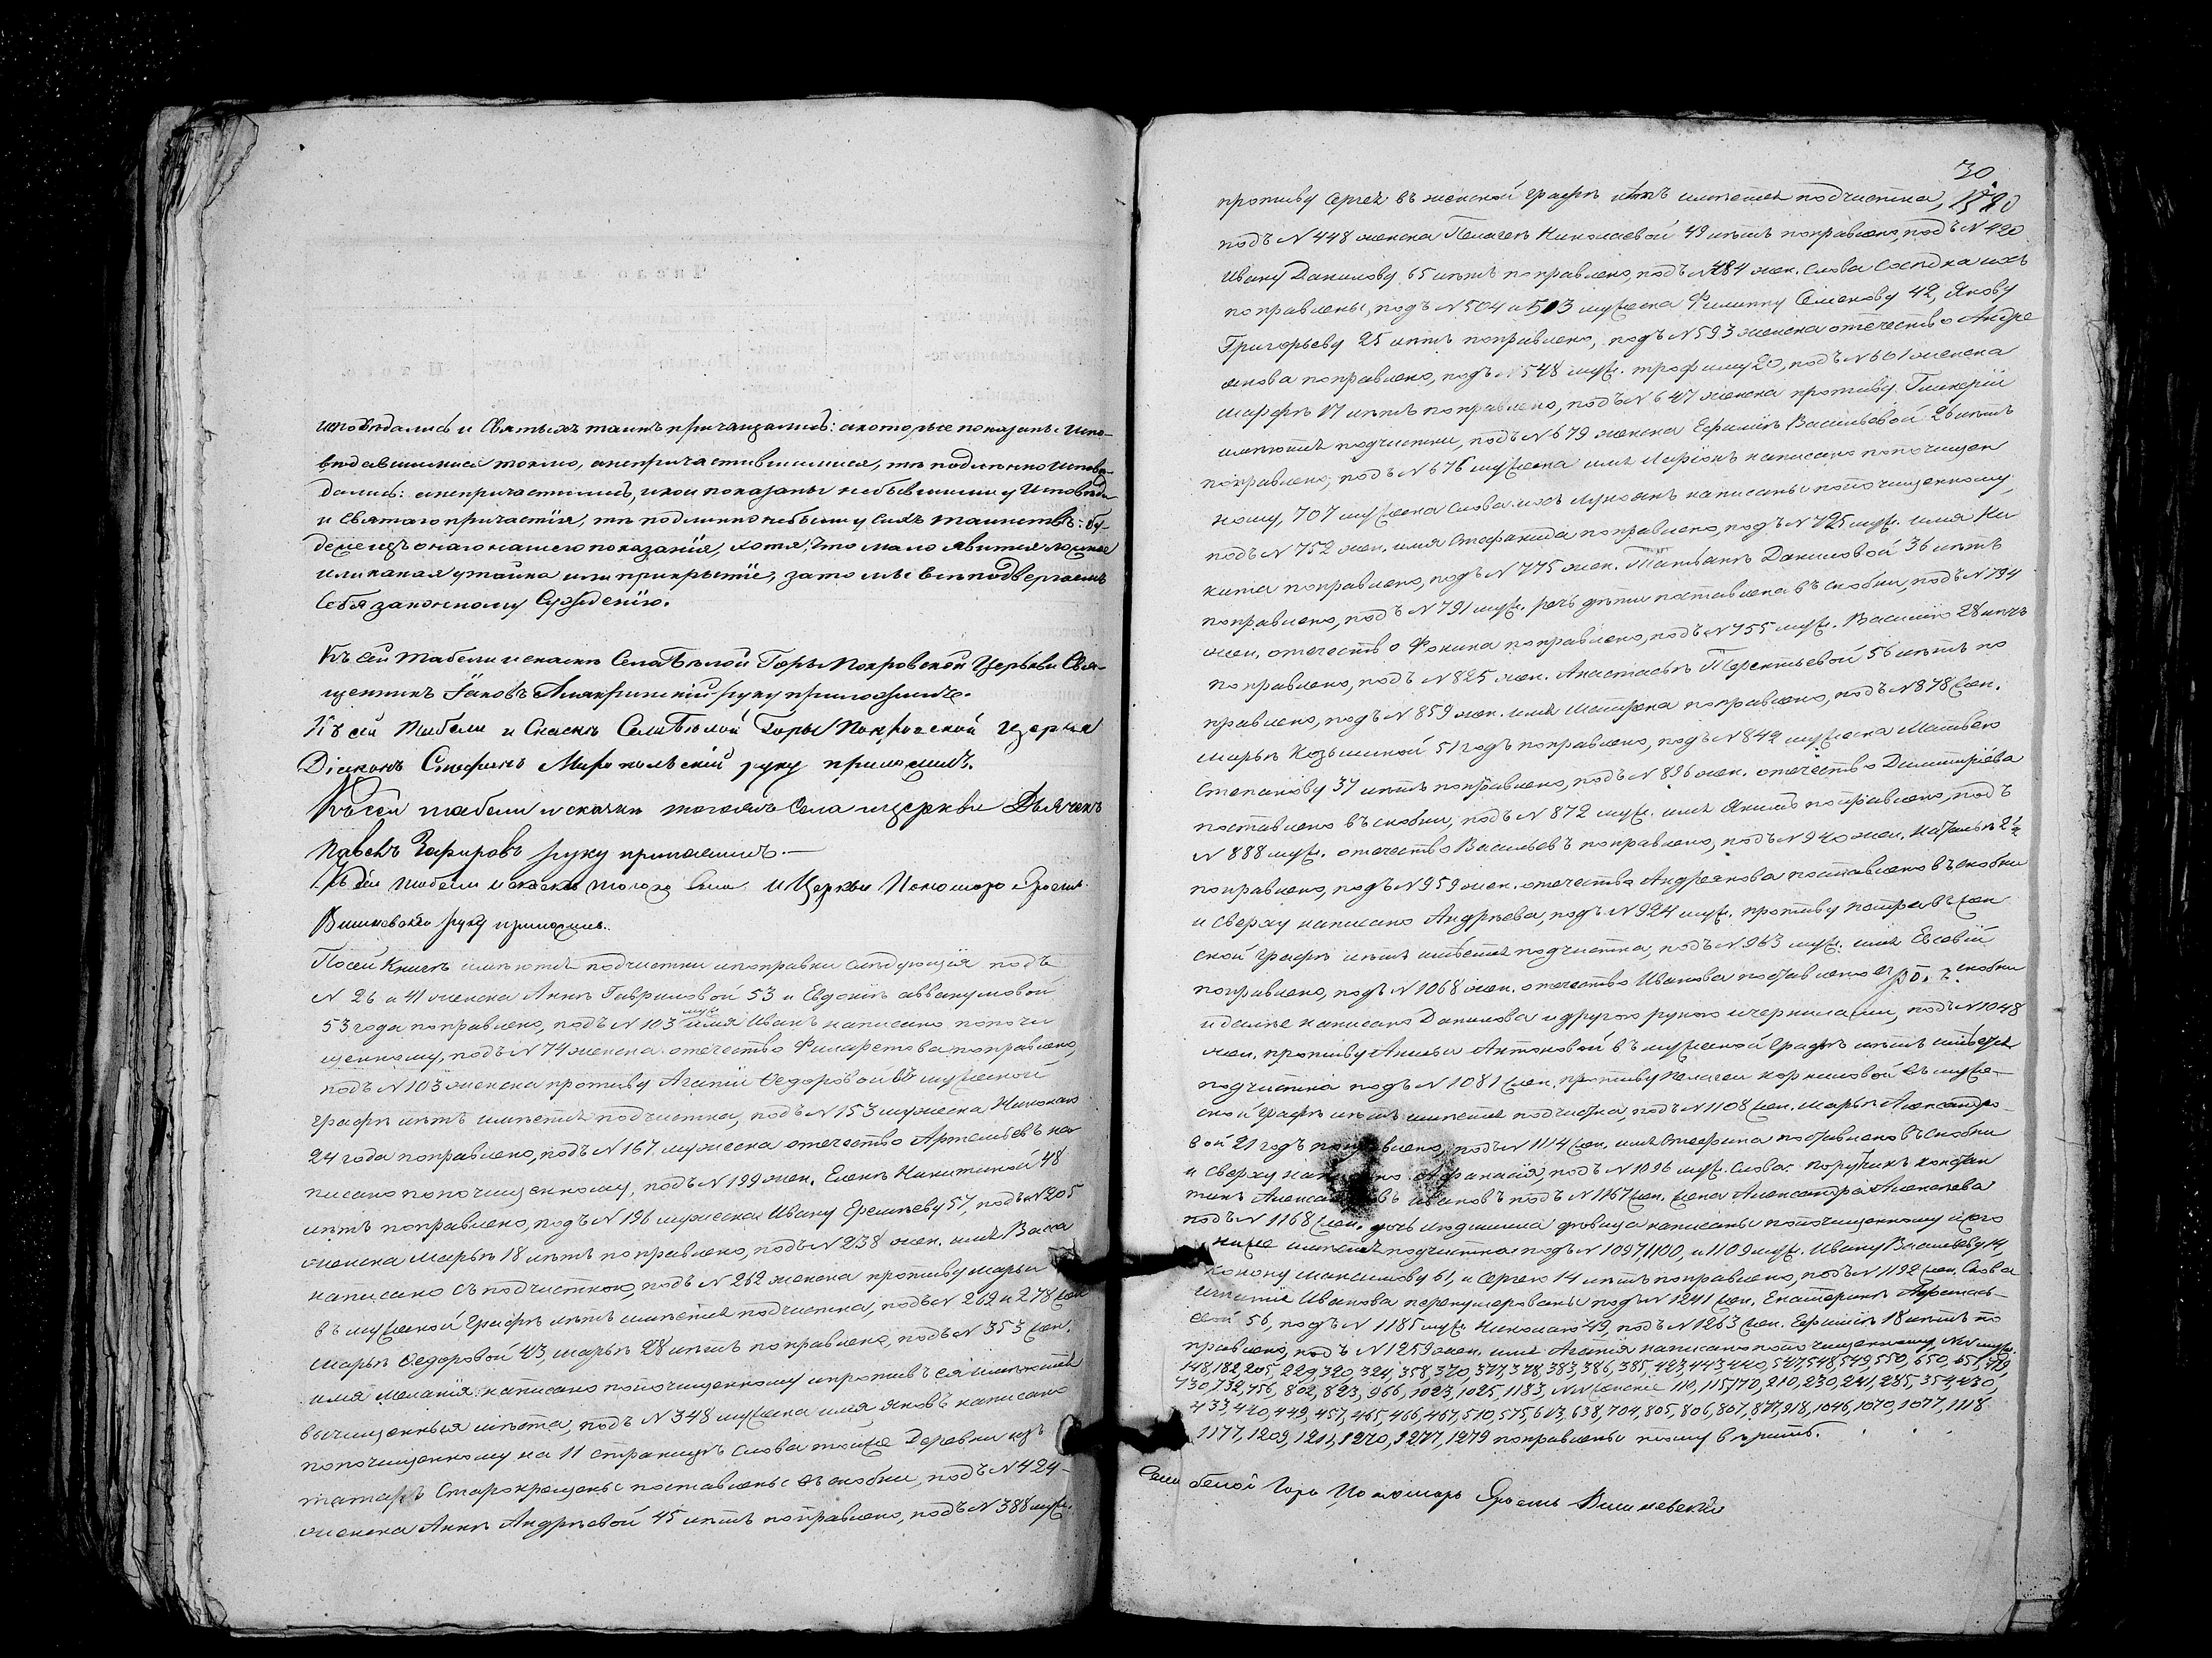 исповѣдались и Святыхъ таинъ причащались: а которые показаны испо-
вѣдавшимися токмо, а непричастившимися, тѣ подлинно исповѣ-
дались: а непричастились, и кои показаны небывшими у Исповѣди
и Святаго причастія, тѣ подлинно небыли у сихъ таинствъ: бу-
де же изъ онаго нашего показанія, хотя, что мало явится ложное
или какая утайка или прикрытіе, за то мы всѣ подвергаемъ
Себя законному Сужденію.
Къ сей табели и сказкѣ Села Бѣлой Горы Покровской Церкви Свя-
щенникъ Іаковъ Алякринскій руку приложилъ.
Къ сей Табели и Сказкѣ Села Бѣлой Горы Покровской Церкви
Діаконъ Стефанъ Миропольскій руку приложилъ.
Къ сей табели и сказки тогожъ Села и церкви Дьячекъ
Павелъ Зефировъ руку приложилъ.
Къ сей табели и сказкѣ тогожъ Села и Церкви Пономарь
Вишневскій руку приложилъ.
По сей Книгѣ имѣются подчистки и поправки слѣдующія подъ
N 26 и 41 женска Аннѣ Гавриловой 53 и Евдокіѣ аввакумовой
53 года поправлено, подъ N 103 муж. имя Иванъ написано по почи
щенному, подъ N 74 женска отечество Филаретова поправлено,
подъ N 103 женска противу Агапіи Ѳедоровой въ мужеской
графѣ лѣтъ имѣется подчистка, подъ N 153 мужеска Николаю
24 года поправлено, подъ N 167 мужеска отечество Артемьевъ на
писано по почищенному, подъ N 199 жен. Еленѣ Никитиной 48
лѣтъ поправлено, подъ N 196 мужеска Ивану Еремѣеву 57, подъ N 205
женска Марьѣ 18 лѣтъ поправлено, подъ N 238 жен. имя Васса
написано съ подчисткою, подъ N 262 женска противу Марьи
въ мужеской графѣ лѣтъ имѣется подчистка, подъ N 269 и 278 жен
Марьѣ Ѳедоровой 43, Марьѣ 28 лѣтъ поправлено, подъ N 353 жен.
имя Меланія написано по почищенному и противъ ея имѣются
вычищенныя лѣта, подъ N 348 мужеска имя Яковъ написано
по почищенному на 11 страницѣ слова тоже Деревни изъ
татаръ Старокрещены поставлены въ скобки, подъ N 424
женска Аннѣ Андрѣевой 45 лѣтъ поправлено, подъ N 388 муж.
30
противу Сергея въ женской графѣ лѣтъ имѣется подчистка,
подъ N 448 женска Пелагеѣ Николаевой 49 лѣтъ поправлено, подъ N 420
Ивану Данилову 65 лѣтъ поправлено, подъ N 484 жен. слова Сосѣдка ихъ
поправлены, подъ N 504 и 513 мужеска Филиппу Семенову 42, Якову
Григорьеву 25 лѣтъ поправлено, подъ N 593 женска отечество Андре
янова поправлено, подъ N 548 муж. трофиму 20, подъ N 601 женска
Марфѣ 17 лѣтъ поправлено, подъ N 647 женска противу Гликеріи
имѣются подчистки, подъ N 679 женска Ефиміѣ Васильевой 26 лѣтъ
поправлено, подъ N 676 мужеска имя Ларіонъ написано по почищен
ному, 707 мужеска слова ихъ Лукоянъ написаны по почищенному,
подъ N 752 жен. имя Стефанида поправлено, подъ N 725 муж. имя Ни
кита поправлено, подъ N 775 жен. Татьянѣ Даниловой 36 лѣтъ
поправлено, подъ N 791 муж. речь дѣти поставлена въ скобки, подъ N 794
жен. отечество Фокина поправлено, подъ N 755 муж. Василію 28 лѣтъ
поправлено, подъ N 825 жен. Анастасьѣ Терентьевой 56 лѣтъ по
правлено, подъ N 859 жен. имя Матрена поправлено, подъ N 878 жен.
Марьѣ Козьминой 51 годъ поправлено, подъ N 842 мужеска Матвѣю
Степанову 37 лѣтъ поправлено, подъ N 896 жен. отечество Димитріева
поставлено въ скобки, подъ N 872 муж. имя Якимъ поправлено, подъ
N 888 муж. отечество Васильевъ поправлено, подъ N 940 жен. Натальѣ 2½
поправлено, подъ N 959 жен. отечество Андреянова поставлено въ скобки
и сверху написано Андрѣева, подъ N 924 муж. противу Петра въ жен
ской графѣ лѣтъ имѣется подчистка, подъ N 963 муж. имя Евсевій
поправлено, подъ N 1068 жен. отечество Иванова поставлено въ скобки
и далѣе написано Данилова и другою рукою и чернилами, подъ N 1048
жен. противу Аксиньи Антоновой въ мужеской графѣ лѣтъ имѣется
подчистка подъ N 1081 жен. противу Пелагеи Корниловой въ муже-
ской графѣ лѣтъ имѣется подчистка, подъ N 1108 жен. Марьѣ Александро-
вой 21 годъ поправлено, подъ N 1114 жен. имя Стефанида поставлено въ скобки
и сверху написано Афанасія, подъ N 1096 муж. слова: поручикъ констан
тинъ Александровъ Ивановъ подъ N 1167 жен. жена Александра Алексѣева
подъ N 1168 жен. дочь Людмилла дѣвица написаны по почищенному и его
ниже имѣется подчистка подъ N 1097, 1100, и 1109 муж. Ивану Васильеву 14,
Конону Максимову 61, и Сергею 14 лѣтъ поправлено, подъ N 1192 жен. слова
Иванова перенумерованы подъ N 1241 жен. Екатеринѣ Афанась-
евой 56, подъ N 1185 муж. Николаю 49, подъ N 1263 жен. Ефиміѣ 18 лѣтъ по
правлено, подъ N 1259 жен. имя Агапія написано по почищенному NN муж.
148, 182, 205, 229, 320, 324, 358, 370, 377, 378, 383, 386, 385, 423, 443, 440, 547, 548, 549, 550, 650, 651, 719,
730, 732, 756, 802, 823, 966, 1023, 1025, 1183, NN женские 110, 115, 170, 210, 230, 241, 285, 354, 430,
433, 440, 449, 457, 465, 466, 467, 510, 575, 613, 638, 704, 805, 806, 807, 877, 918, 1046, 1070, 1077, 1118
1177, 1209, 1211, 1270, 1277, 1279 поправлены тому вѣрить.
Села белой Горы Пономарь Вишневскій